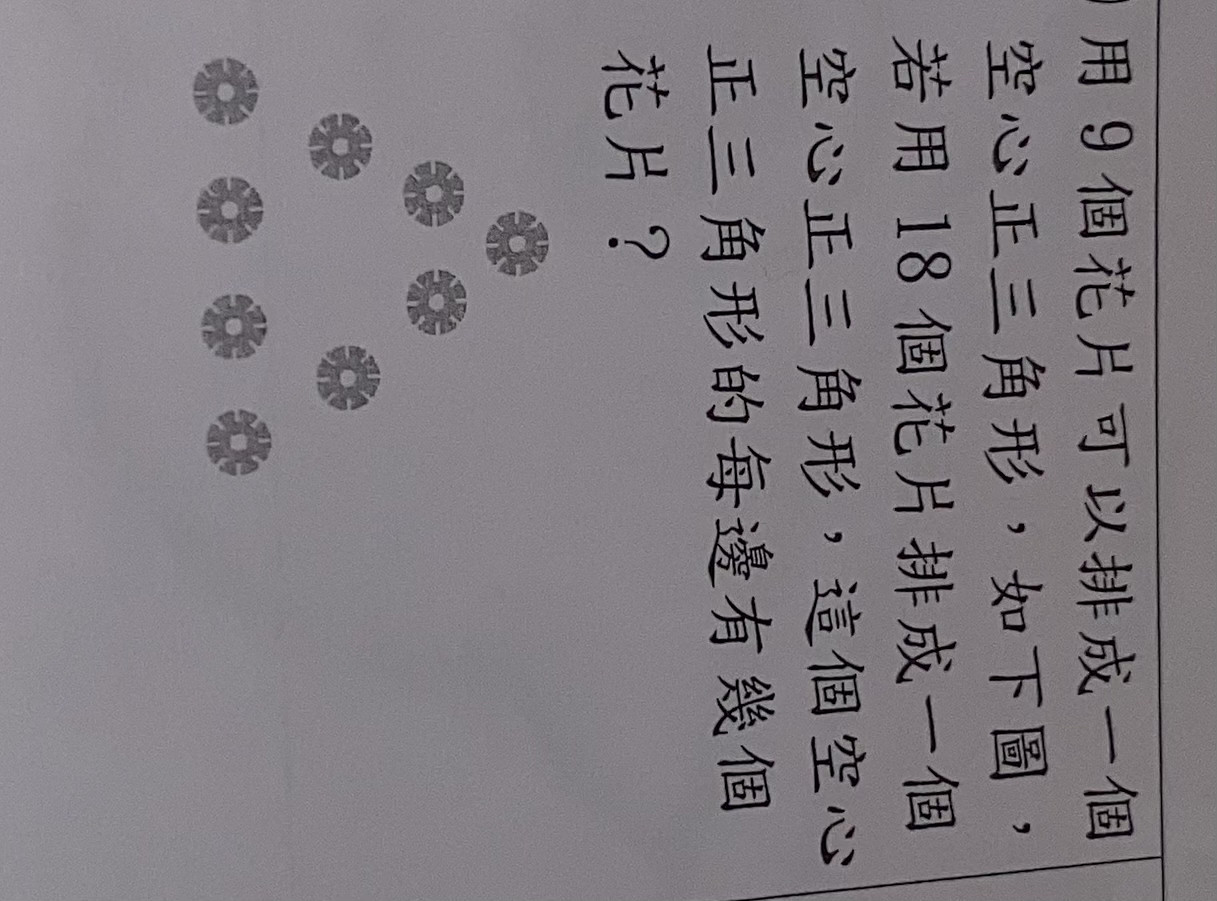 ) 用 9 個花片可以排成一個
空心正三角形，如下圖，
若用 18 個花片排成一個
空心正三角形，這個空心
正三角形的每邊有幾個
花片？